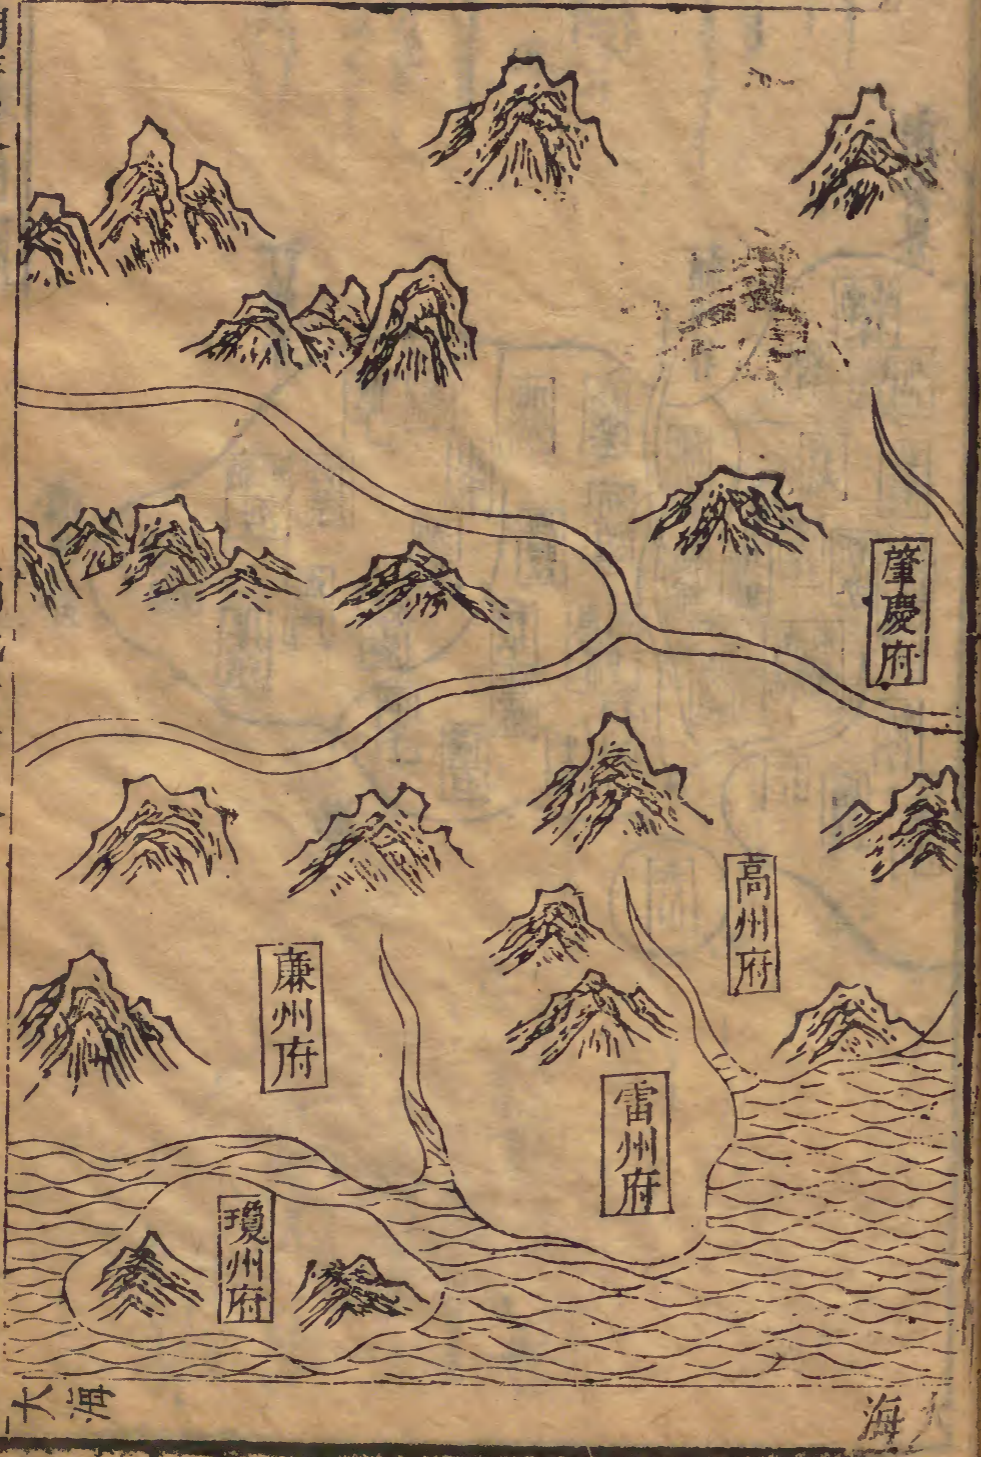 肇慶府
高州府
雷州府
廉州府
瓊州府
大海
海